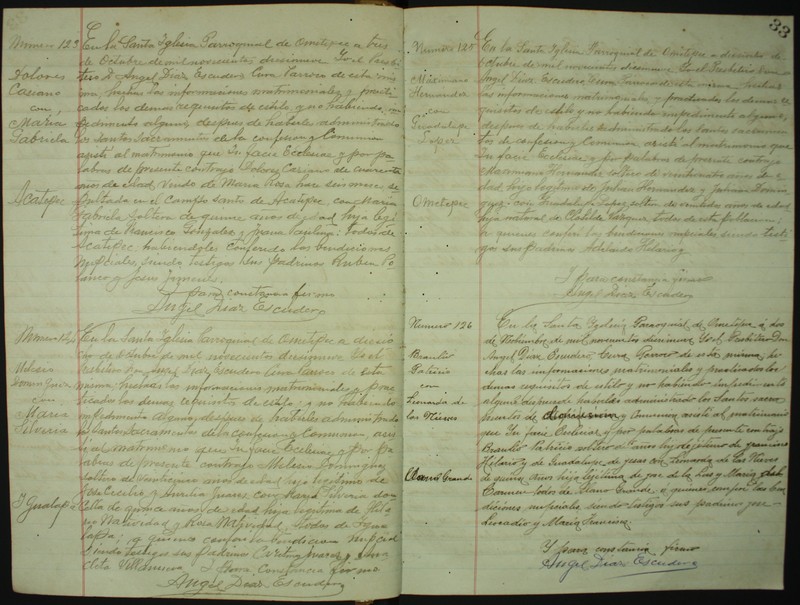 33
Numero 123
Dolores
Casiano
con
Maria
Gabriela
Acatepec
En la Santa Iglesia Parroquial de Ometepec a tres
de Octubre de mil novecientos diecinueve Yo el Presbi-
tero D. Angel Diaz Escudero Cura Parroco de esta mis
ma, hechas las informaciones matrimoniales y practi-
cados los demas requisitos de estilo y no habiendo im
pedimento alguno, despues de haberles administrado
los Santos Sacramentos de la confesion y Comunion
asistí al matrimonio que In facie Eclesiae y por pa-
labras de presente contrajo Dolores Casiano de cuarenta
años de edad, Viudo de Maria Rosa hace seis meses se
pultada en el Campo Santo de Acatepec, con Maria
Gabriela soltera de quince años de edad hija legi
tima de Francisco Gonzalez y Juana Paulina: todos de
Acatepec habiendoles conferido las bendiciones
nupciales, siendo testigos sus padrinos Ruben Po
lanco y Jesus
Y para constancia firmo
Angel Diaz Escudero
Melesio
Dominguez
con
Maria
Silveria
Igualapa
En la Santa Iglesia Parroquial de Ometepec a dieci
de Octubre de mil novecientos diecinueve Yo el
Presbitero Don Angel Diaz Escudero Cura Parroco de esta
misma, hechas las informaciones matrimoniales y prac
ticados los demas requisitos de estilo y no habiendo
impedimento alguno, despues de haberles administrado
los Santos Sacramentos de la confesion y Comunion, asis
tí al matrimonio que In facie Ecclesiae y por pa
labras de presente contrajo Melesio Dominguez
soltero de veinticinco años de edad hijo legitimo de
y Aurelia Juarez con Maria Silveria don
cella de quince años de edad hija legitima de
Natividad y Rosa Natividad, todos de Igua
lapa; a quienes conferi las bendiciones nupciales
siendo testigos sus Padrinos
Villanueva Y para constancia firmo
Angel Diaz Escudero
Numero 125
Maximiano
Hernandez
con
Guadalupe
Lopez
Ometepec
En la Santa Iglesia Parroquial de Ometepec a dieciocho de
Octubre de mil novecientos diecinueve. Yo el Presbitero Don
Angel Diaz Escudero, Cura Parroco de esta misma, hechas
las informaciones matrimoniales y practicados los demas re
quisitos de estilo y no habiendo impedimento alguno,
despues de haberles administrado los Santos sacramen
tos de confesion y Comunion, asistí al matrimonio que
In facie Ecclesiae y por palabras de presente contrajo
Maximiano Hernandez soltero de veinticuatro años de e
dad hijo legitimo de Julian Hernandez y
con Guadalupe Lopez soltera de veintidos años de edad
hija natural de Clotilde Vazquez, todos de esta poblacion:
a quienes conferi las bendiciones nupciales siendo testi
gos sus padrinos Adelaido Hilario
Y para constancia firmo
Angel Diaz Escudero
Numero 126
Braulio
Patricio
con
Leonarda de
las Nieves
Llano Grande
En la Santa Iglesia Parroquial de Ometepec á dos
de Noviembre de mil novecientos diecinueve Yo el Presbitero Don
Angel Diaz Escudero, Cura Parroco de esta misma, he
chas las informaciones matrimoniales y practicados los
demas requisitos de estilo y no habiendo impedimento
alguno despues de haberles administrado los Santos sacra
mentos de y Comunion, asistí al matrimonio
que In facie Ecclesiae y por palabras de presente contrajo
Braulio Patricio soltero de años hijo legitimo de
Hilario y de Guadalupe de Jesus con Leonarda de las Nieves
de quince años hija legitima de Jose de la Luz y Maria
Carmen todos de Llano Grande, a quienes conferi las ben
diciones nupciales siendo testigos sus padrinos Jose
Leocadio y Maria Francisca
Y para constancia firmo
Angel Diaz Escudero